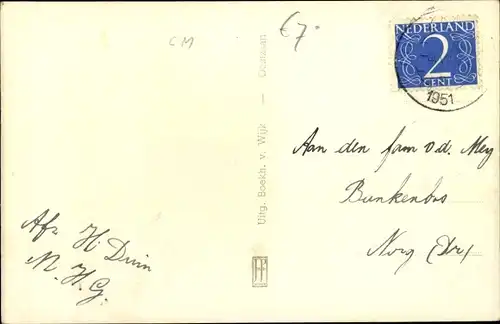 CM
€7.
NEDERLAND
2
CENT
1951
Aan den fam v.d. Mey
Bunkenbos
Norg (Dr)
Afz H. Duin
M. H. G.
Uitg. Boekh. v. Wijk —